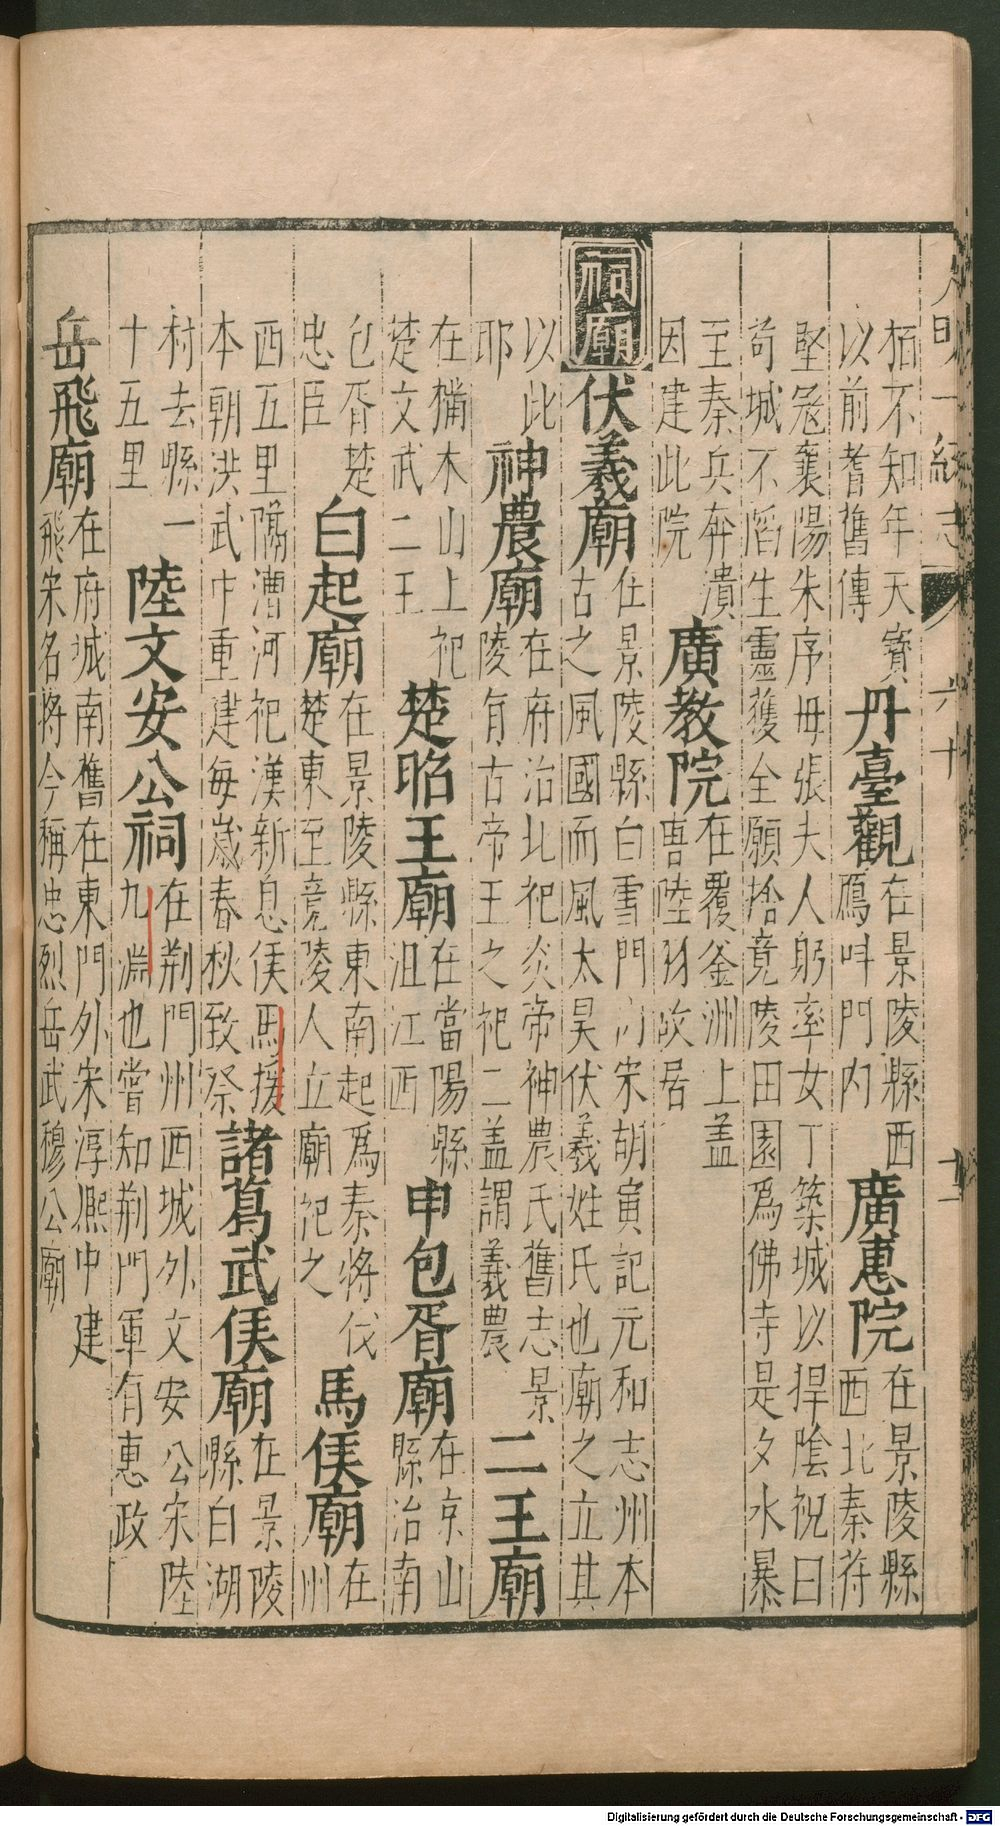 大明一統志 六十 十一
栢不知年天寶
以前耆舊傳
丹臺觀
在景陵縣西
鴈叫門內
廣惠院
在景陵縣
西北秦苻
堅宼襄陽朱序母張夫人躬率女丁築城以捍隂祝曰
苟城不䧟生靈獲全願捨竟陵田園爲佛寺是夕水暴
至秦兵奔潰
因建此院
廣教院
在覆釜洲上蓋
唐陸羽故居
祠廟
伏羲廟
在景陵縣白雪門內宋胡寅記元和志州本
古之風國而風太昊伏羲姓氏也廟之立其
以此
耶
神農廟
在府治北祀炎帝神農氏舊志景
陵有古帝王之祀二蓋謂羲農
二王廟
在樠木山上祀
楚文武二王
楚昭王廟
在當陽縣
沮江西
申包胥廟
在京山
縣治南
包胥楚
忠臣
白起廟
在景陵縣東南起爲秦將伐
楚東至竟陵人立廟祀之
馬侯廟
在
州
西五里隔漕河祀漢新息侯馬援
本朝洪武中重建每歲春秋致祭
諸葛武侯廟
在景陵
縣白湖
村去縣一
十五里
陸文安公祠
在荆門州西城外文安公宋陸
九淵也嘗知荆門軍有惠政
岳飛廟
在府城南舊在東門外宋淳熈中建
飛宋名將今稱忠烈岳武穆公廟
Digitalisierung gefördert durch die Deutsche Forschungsgemeinschaft - DFG